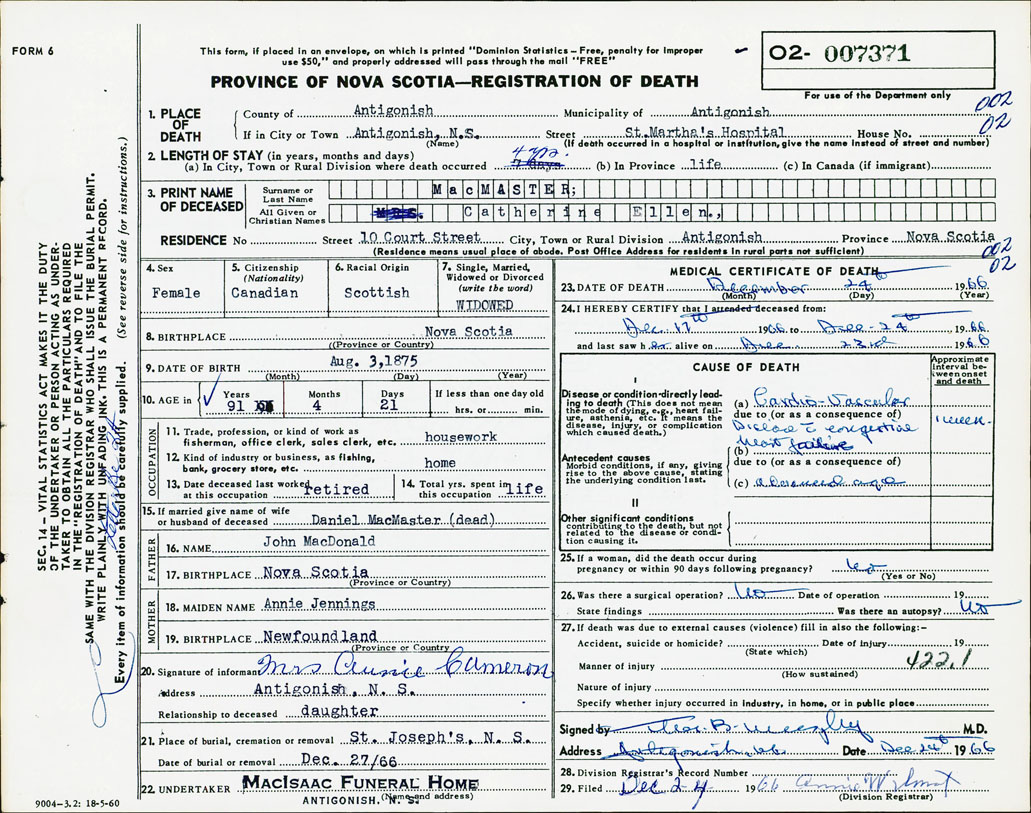 FORM 6
This form, if placed in an envelope, on which is printed "Dominion Statistics – Free, penalty for improper
use $50," and properly addressed will pass through the mail "FREE"
PROVINCE OF NOVA SCOTIA—REGISTRATION OF DEATH
02- 007371
For use of the Department only
002
02
1. PLACE OF DEATH
County of Antigonish Municipality of Antigonish
If in City or Town Antigonish, N.S. Street St.Martha's Hospital House No.
(Name) (If death occurred in a hospital or institution, give the name instead of street and number)
2. LENGTH OF STAY (in years, months and days)
(a) In City, Town or Rural Division where death occurred 4 yrs. 7 days (b) In Province life (c) In Canada (if immigrant)
3. PRINT NAME OF DECEASED
Surname or Last Name MacMASTER;
All Given or Christian Names Mrs. Catherine Ellen.,
RESIDENCE No Street 10 Court Street City, Town or Rural Division Antigonish Province Nova Scotia
(Residence means usual place of abode. Post Office Address for residents in rural parts not sufficient)
002
02
4. Sex
Female
5. Citizenship
(Nationality)
Canadian
6. Racial Origin
Scottish
7. Single, Married, Widowed or Divorced
(write the word)
WIDOWED
8. BIRTHPLACE Nova Scotia
(Province or Country)
9. DATE OF BIRTH Aug. 3,1875
(Month) (Day) (Year)
10. AGE in
Years Months Days If less than one day old
91 4 21 hrs. or min.
OCCUPATION
11. Trade, profession, or kind of work as
fisherman, office clerk, sales clerk, etc. housework
12. Kind of industry or business, as fishing,
bank, grocery store, etc. home
13. Date deceased last worked
at this occupation retired
14. Total yrs. spent in
this occupation life
15. If married give name of wife
or husband of deceased Daniel MacMaster (dead)
FATHER
16. NAME John MacDonald
17. BIRTHPLACE Nova Scotia
(Province or Country)
MOTHER
18. MAIDEN NAME Annie Jennings
19. BIRTHPLACE Newfoundland
(Province or Country)
20. Signature of informant Mrs Annie Cameron
Address Antigonish, N. S.
Relationship to deceased daughter
21. Place of burial, cremation or removal St. Joseph's, N. S.
Date of burial or removal Dec. 27/66
22. UNDERTAKER MACISAAC FUNERAL HOME
(Name and address)
ANTIGONISH, N. S.
9004-3.2: 18-5-60
MEDICAL CERTIFICATE OF DEATH
23. DATE OF DEATH December 24th 1966
(Month) (Day) (Year)
24. I HEREBY CERTIFY that I attended deceased from:
Dec. 17th 1966 to Dec-24th 1966
and last saw her alive on Dec. 23rd 1966
CAUSE OF DEATH
Approximate interval between onset and death
I
Disease or condition directly leading to death (This does not mean the mode of dying, e.g., heart failure, asthenia, etc. It means the disease, injury, or complication which caused death.)
(a) Cardio-Vascular
due to (or as a consequence of)
Disease c congestive
(b) heart failure
1 week
Antecedent causes
Morbid conditions, if any, giving rise to the above cause, stating the underlying condition last.
due to (or as a consequence of)
(c) advanced age
II
Other significant conditions
contributing to the death, but not related to the disease or condition causing it.
25. If a woman, did the death occur during
pregnancy or within 90 days following pregnancy? No
(Yes or No)
26. Was there a surgical operation? No Date of operation 19
State findings Was there an autopsy? No
27. If death was due to external causes (violence) fill in also the following:–
Accident, suicide or homicide? Date of injury 19
(State which)
Manner of injury 422.1
(How sustained)
Nature of injury
Specify whether injury occurred in industry, in home, or in public place
Signed by M.D.
Address Antigonish Date Dec 24th 1966
28. Division Registrar's Record Number
29. Filed Dec 24 1966 Annie
(Division Registrar)
SEC. 14 – VITAL STATISTICS ACT MAKES IT THE DUTY
OF THE UNDERTAKER OR PERSON ACTING AS UNDER-
TAKER TO OBTAIN ALL THE PARTICULARS REQUIRED
IN THE "REGISTRATION OF DEATH" AND TO FILE THE
SAME WITH THE DIVISION REGISTRAR WHO SHALL ISSUE THE BURIAL PERMIT.
WRITE PLAINLY WITH UNFADING INK. THIS IS A PERMANENT RECORD.
Every item of information should be carefully supplied. (See reverse side for instructions.)